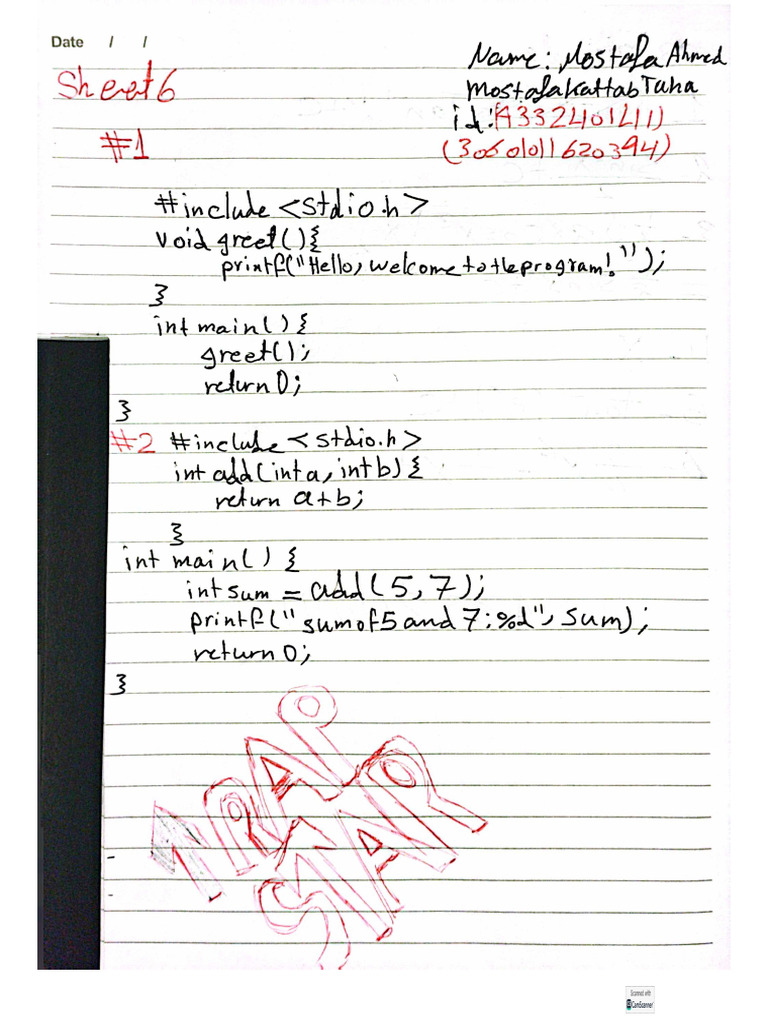 Date / /
Name: Mostafa Ahmed
Sheet 6
Mostafa Kattab Taha
id: (A332401411)
#1
(30601011620394)
#include <stdio.h>
void greet(){
printf("Hello, welcome to the program!");
}
int main() {
greet();
return 0;
}
#2 #include <stdio.h>
int add(int a, int b) {
return a+b;
}
int main() {
int sum = add(5,7);
printf("sum of 5 and 7: %d", sum);
return 0;
}
TRAP
STAR
Scanned with
CamScanner